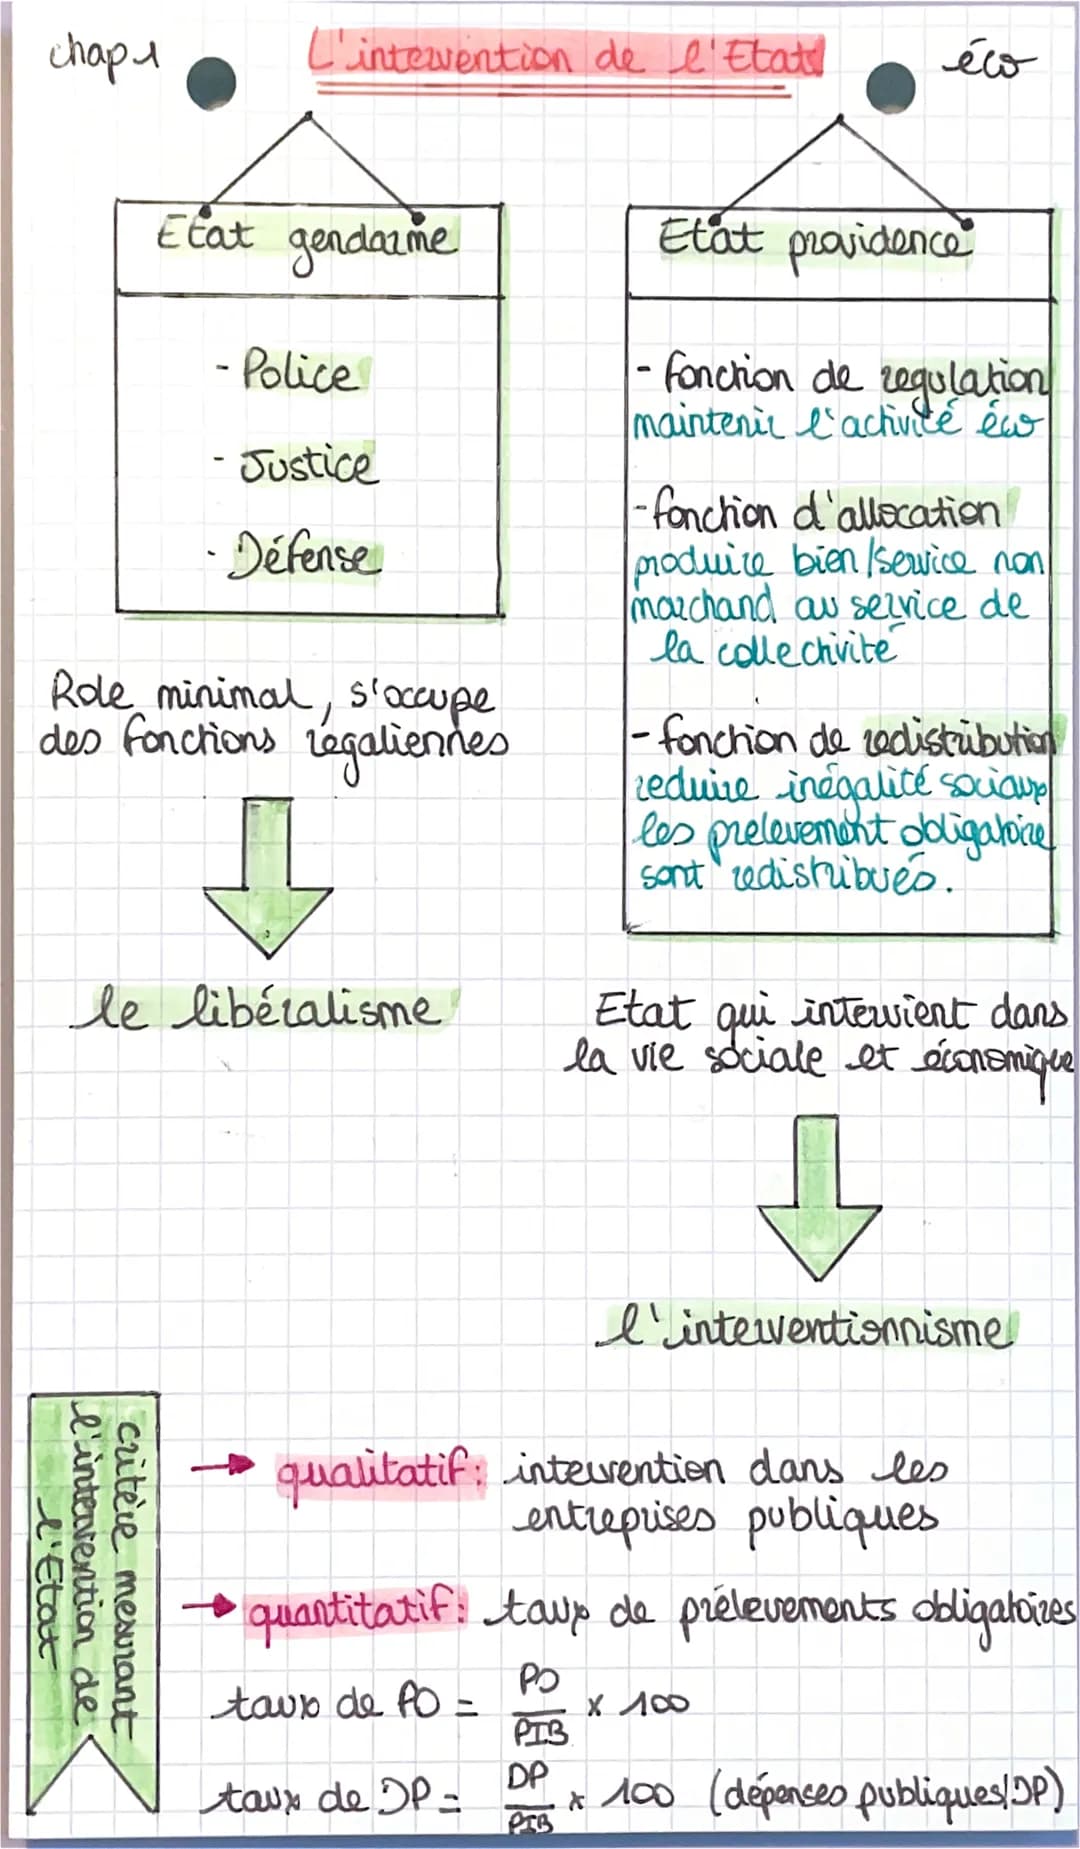 chap 1
L'intervention de l'Etat
éco
Etat gendarme
- Police
- Justice
- Défense
Role minimal, s'occupe
des fonctions régaliennes
le libéralisme
Etat providence
- fonction de regulation
maintenir l'activité éco
- fonction d'allocation
produire bien/service non
marchand au service de
la collectivité
- fonction de redistribution
reduire inégalité sociaux
les prelevement obligatoire
sont redistribués.
Etat qui intervient dans
la vie sociale et économique
l'interventionnisme
critère mesurant
l'intervention de
l'Etat
→ qualitatif: intervention dans les
entreprises publiques
→ quantitatif: taux de prélevements obligatoires
taux de PO = PO/PIB x 100
taux de DP = DP/PIB x 100 (dépenses publiques/DP)